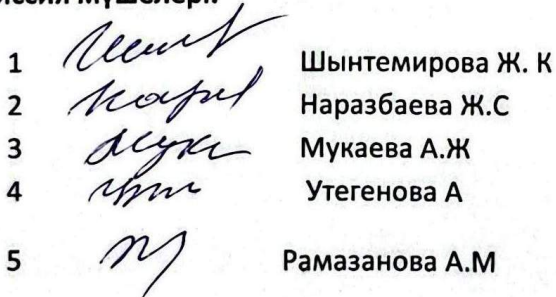 мүшелері:
1 Шынтемирова Ж. К
2 Наразбаева Ж.С
3 Мукаева А.Ж
4 Утегенова А
5 Рамазанова А.М